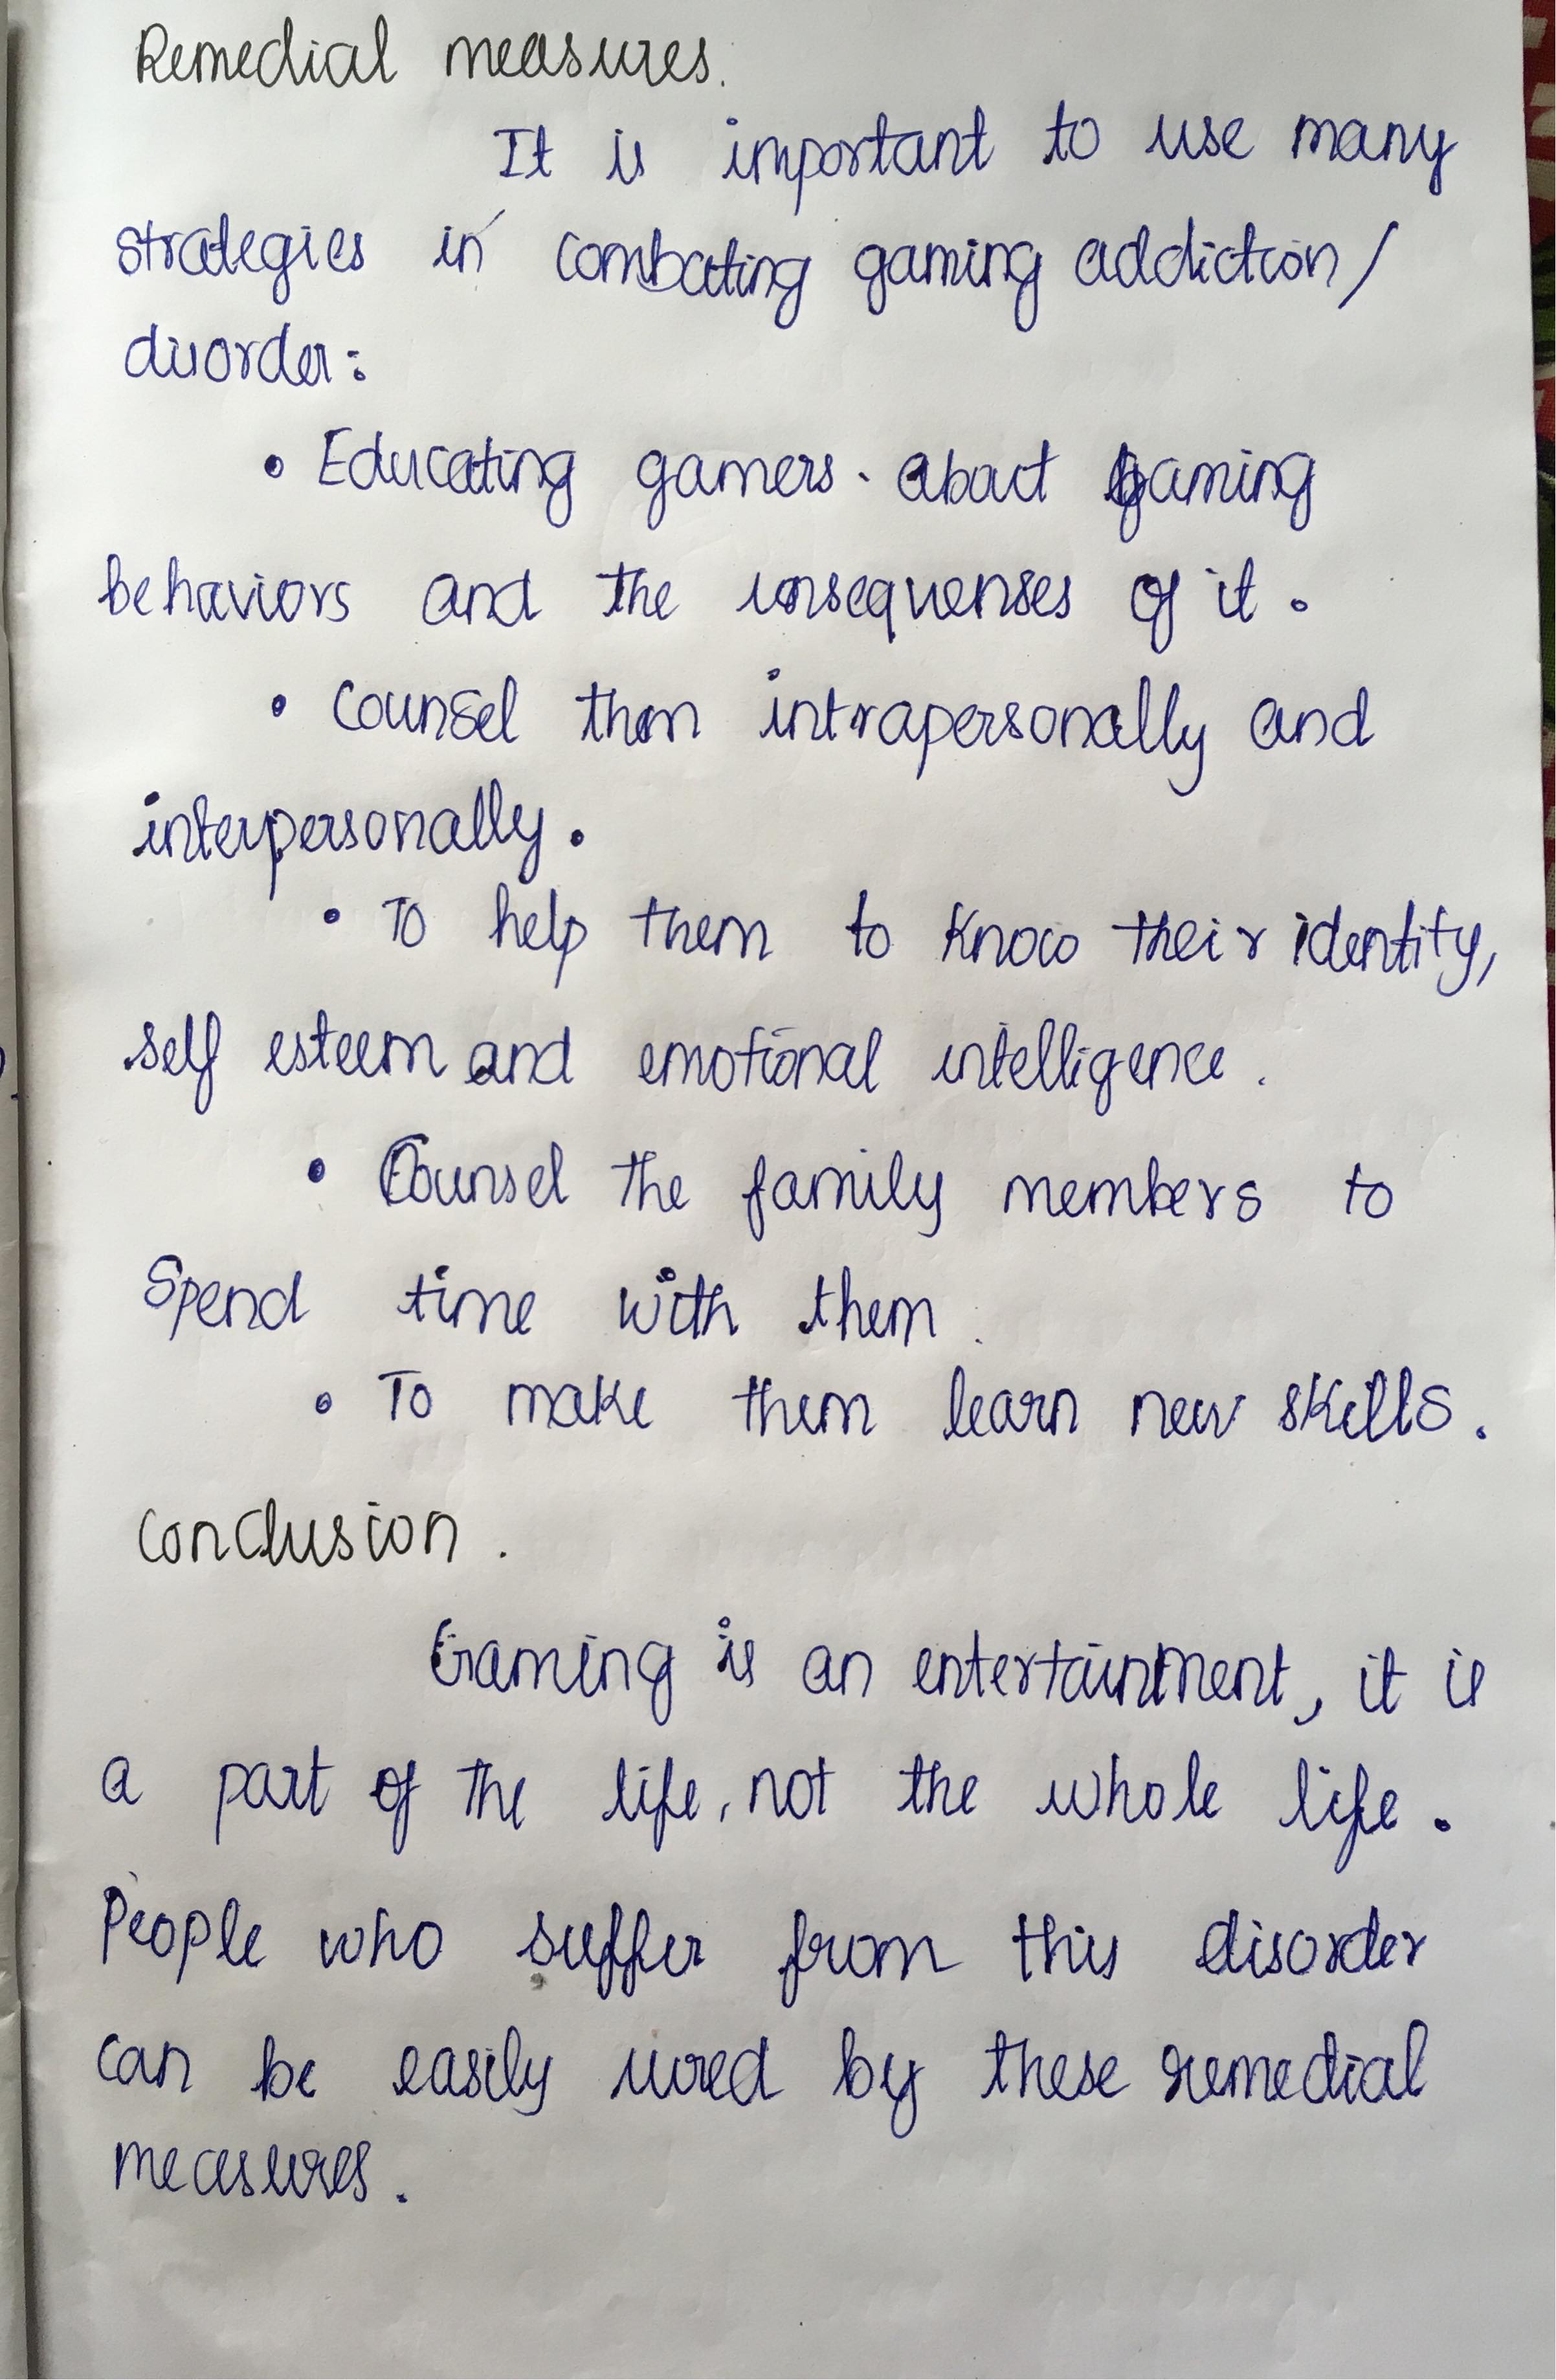 Remedial measures.
It is important to use many
strategies in combating gaming addiction/
disorder:
• Educating gamers. about gaming
behaviors and the consequenses of it.
• Counsel them intrapersonally and
interpersonally.
• To help them to know their identity,
self esteem and emotional intelligence.
• Counsel the family members to
Spend time with them.
• To make them learn new skills.
Conclusion.
Gaming is an entertainment, it is
a part of the life, not the whole life.
People who suffer from this disorder
can be easily cured by these remedial
measures.